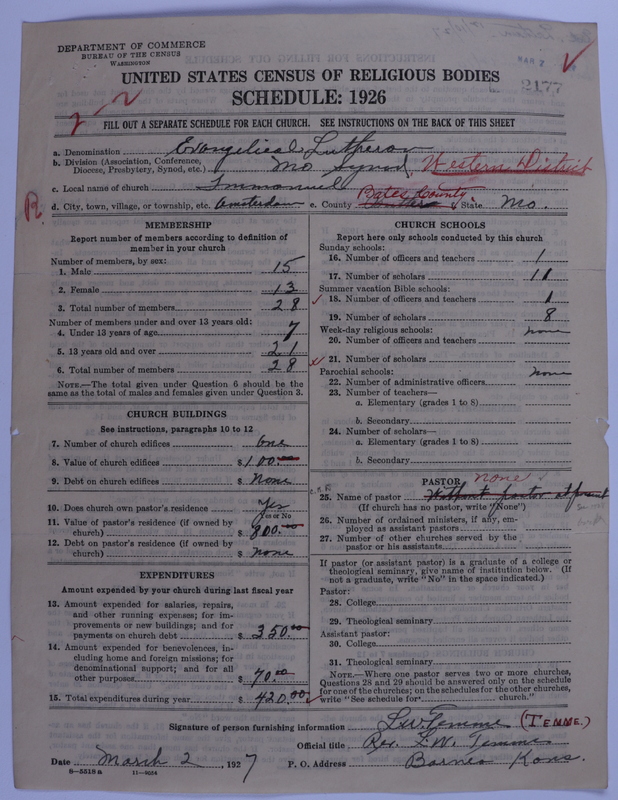 DEPARTMENT OF COMMERCE
BUREAU OF THE CENSUS
WASHINGTON
MAR 7
2177
UNITED STATES CENSUS OF RELIGIOUS BODIES
SCHEDULE: 1926
2-2
FILL OUT A SEPARATE SCHEDULE FOR EACH CHURCH. SEE INSTRUCTIONS ON THE BACK OF THIS SHEET
a. Denomination Evangelical Lutheran
b. Division (Association, Conference, Diocese, Presbytery, Synod, etc.) Mo Synod, Western District
c. Local name of church Immanuel
R
d. City, town, village, or township, etc. Amsterdam e. County Bates County State Mo.
MEMBERSHIP
Report number of members according to definition of
member in your church
Number of members, by sex:
1. Male 15
2. Female 13
3. Total number of members 28
Number of members under and over 13 years old:
4. Under 13 years of age 7
5. 13 years old and over 21
6. Total number of members 28
NOTE.—The total given under Question 6 should be the
same as the total of males and females given under Question 3.
CHURCH BUILDINGS
See instructions, paragraphs 10 to 12
7. Number of church edifices one
8. Value of church edifices $
9. Debt on church edifices $ None
10. Does church own pastor's residence Yes
Yes or No
11. Value of pastor's residence (if owned by
church) $ 800.00
12. Debt on pastor's residence (if owned by
church) $ none
EXPENDITURES
Amount expended by your church during last fiscal year
13. Amount expended for salaries, repairs,
and other running expenses; for im-
provements or new buildings; and for
payments on church debt $ 350.00
14. Amount expended for benevolences, in-
cluding home and foreign missions; for
denominational support; and for all
other purposes $ 70.00
15. Total expenditures during year $ 420.00
CHURCH SCHOOLS
Report here only schools conducted by this church
Sunday schools:
16. Number of officers and teachers 1
17. Number of scholars 11
Summer vacation Bible schools:
18. Number of officers and teachers 1
19. Number of scholars 8
Week-day religious schools: none
20. Number of officers and teachers
21. Number of scholars
Parochial schools: none
22. Number of administrative officers
23. Number of teachers—
a. Elementary (grades 1 to 8)
b. Secondary
24. Number of scholars—
a. Elementary (grades 1 to 8)
b. Secondary
PASTOR none
25. Name of pastor Without pastor at present
(If church has no pastor, write "None")
26. Number of ordained ministers, if any, em-
ployed as assistant pastors
27. Number of other churches served by the
pastor or his assistants
If pastor (or assistant pastor) is a graduate of a college or
theological seminary, give name of institution below. (If
not a graduate, write "No" in the space indicated.)
Pastor:
28. College
29. Theological seminary
Assistant pastor:
30. College
31. Theological seminary
NOTE.—Where one pastor serves two or more churches,
Questions 28 and 29 should be answered only on the schedule
for one of the churches; on the schedules for the other churches,
write "See schedule for church."
Signature of person furnishing information L.W. Temme (TEMME.)
Official title Rev. L.W. Temme
Date March 2, 1927 P. O. Address Barnes Kans.
8—5518 a 11—9654